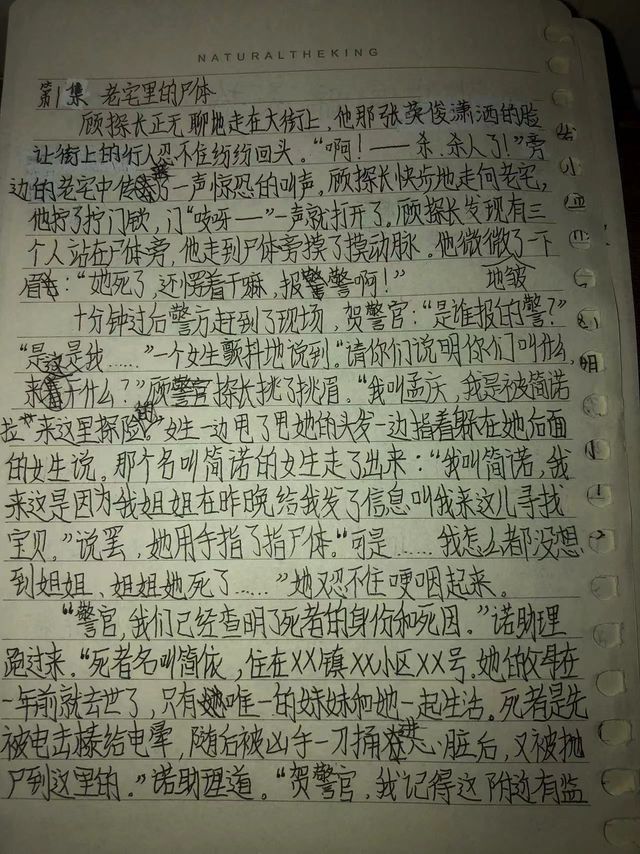 NATURALTHEKING
第1集 老宅里的尸体
顾探长正无聊地走在大街上，他那张英俊潇洒的脸
让街上的行人忍不住纷纷回头。“啊！——杀、杀人了！”旁
边的老宅中传来了一声惊恐的叫声。顾探长快步地走向老宅，
他拧了拧门锁，门“吱呀——”一声就打开了。顾探长发现有三
个人站在尸体旁，他走到尸体旁摸了摸动脉。他微微地皱了一下
眉：“她死了，还愣着干嘛，报警啊！”
十分钟过后警方赶到了现场，贺警官：“是谁报的警？”
“是是我……”一个女生颤抖地说到。“请你们说明你们叫什么，
来干什么？”顾探长挑了挑眉。“我叫孟庆，我是被简诺
“拉”来这里探险的。”女生一边甩了甩她的头发一边指着躲在她后面
的女生说。那个名叫简诺的女生走了出来：“我叫简诺，我
来这是因为我姐姐在昨晚给我发了信息叫我来这儿寻找
宝贝。”说罢，她用手指了指尸体。“可是……我怎么都没想
到姐姐、姐姐她死了……”她又忍不住哽咽起来。
“警官，我们已经查明了死者的身份和死因。”诺助理
跑过来。“死者名叫简依，住在XX镇XX小区XX号。她的父母在
一年前就去世了，只有唯一的妹妹和她一起生活。死者是先
被电击棒给电晕，随后被凶手一刀捅进心脏后，又被抛
尸到这里的。”诺助理道。“贺警官，我记得这附近有监